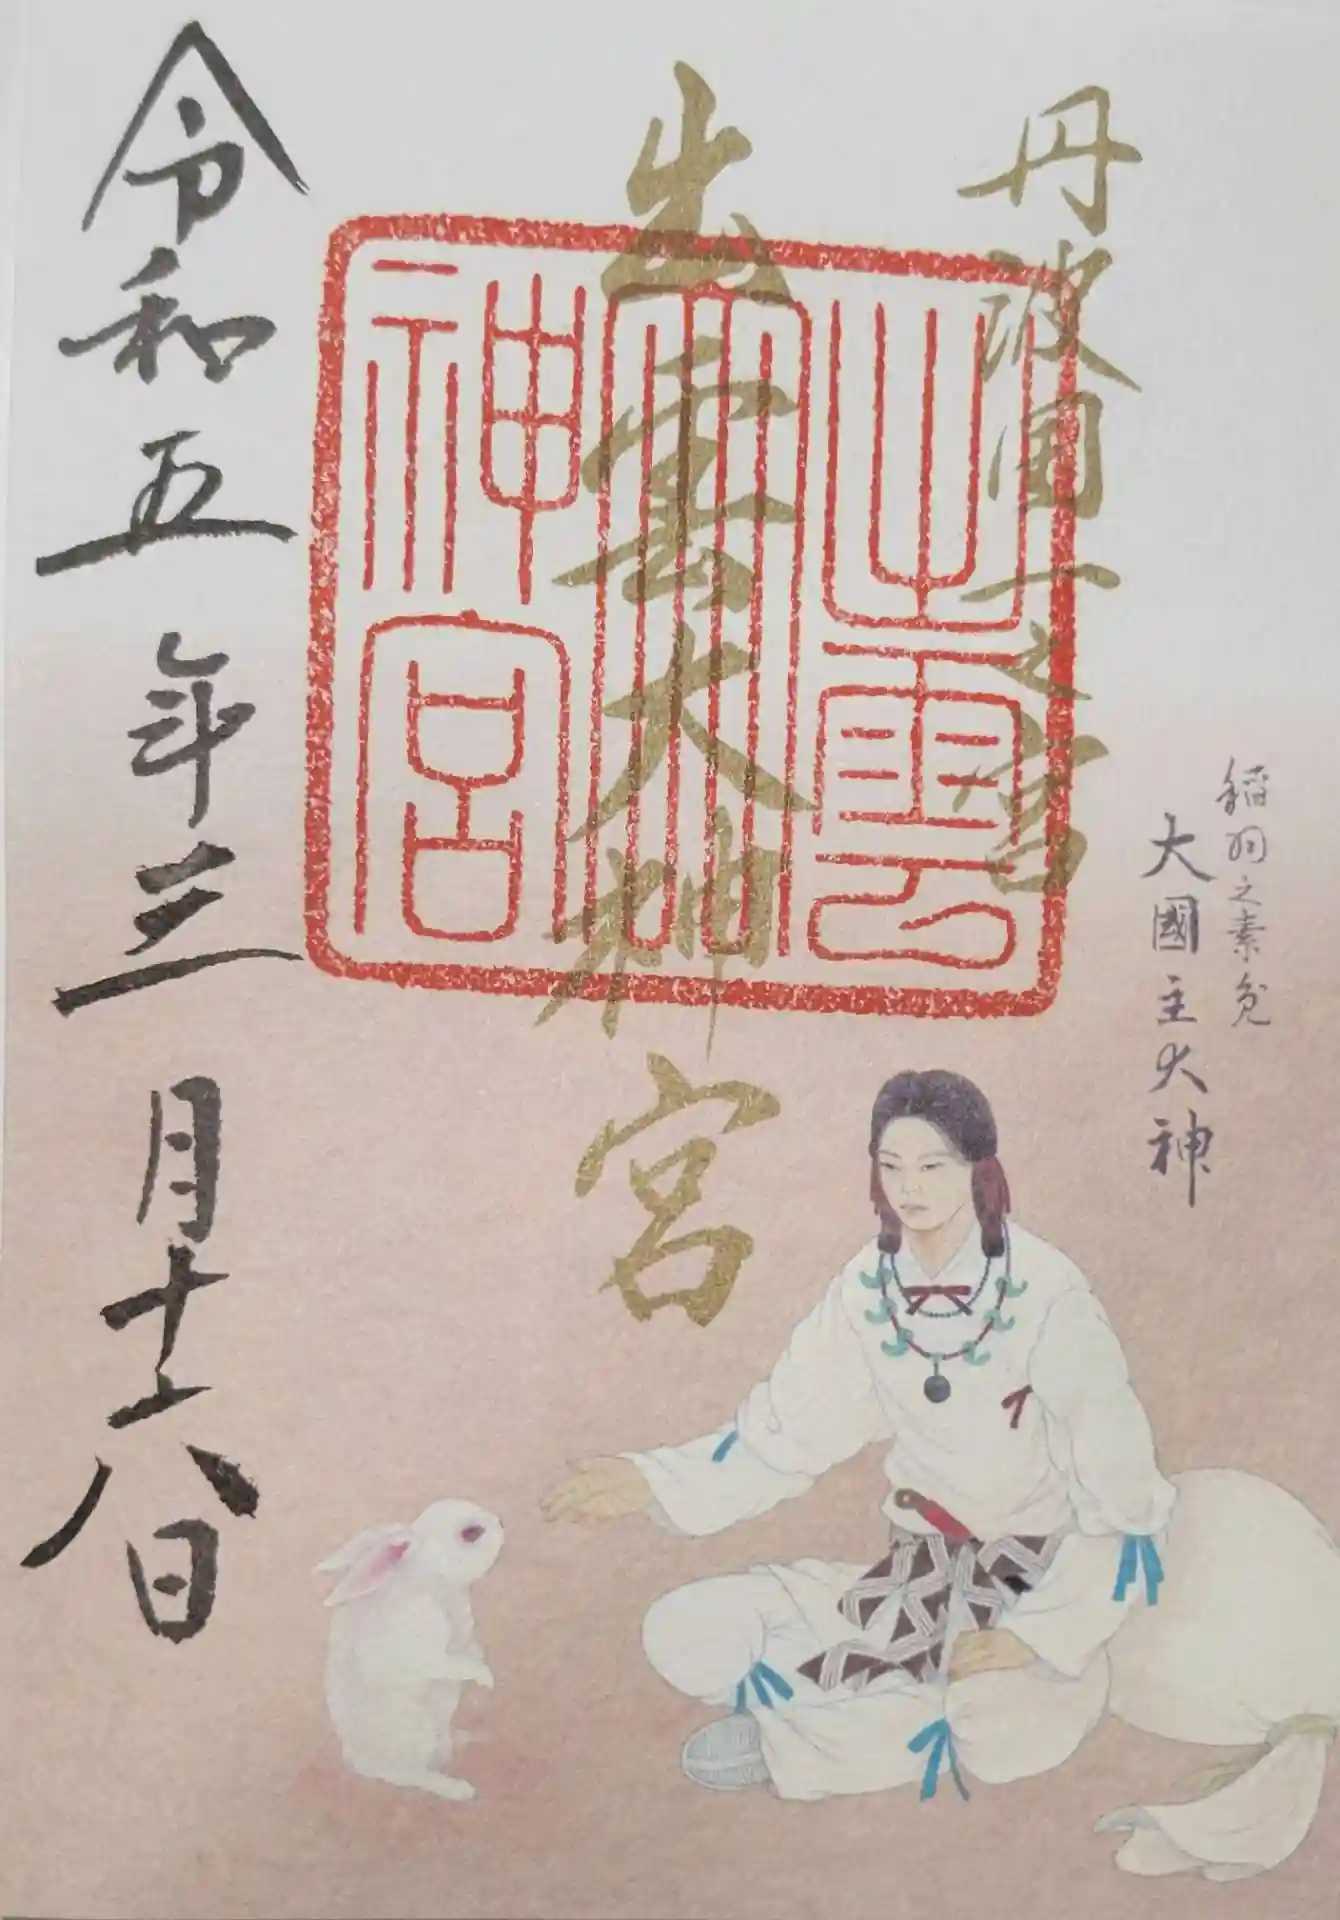 稲羽之素兎
大國主大神
丹波国一之宮
出雲大神宮
出雲
大
神宮
令和五年三月十六日